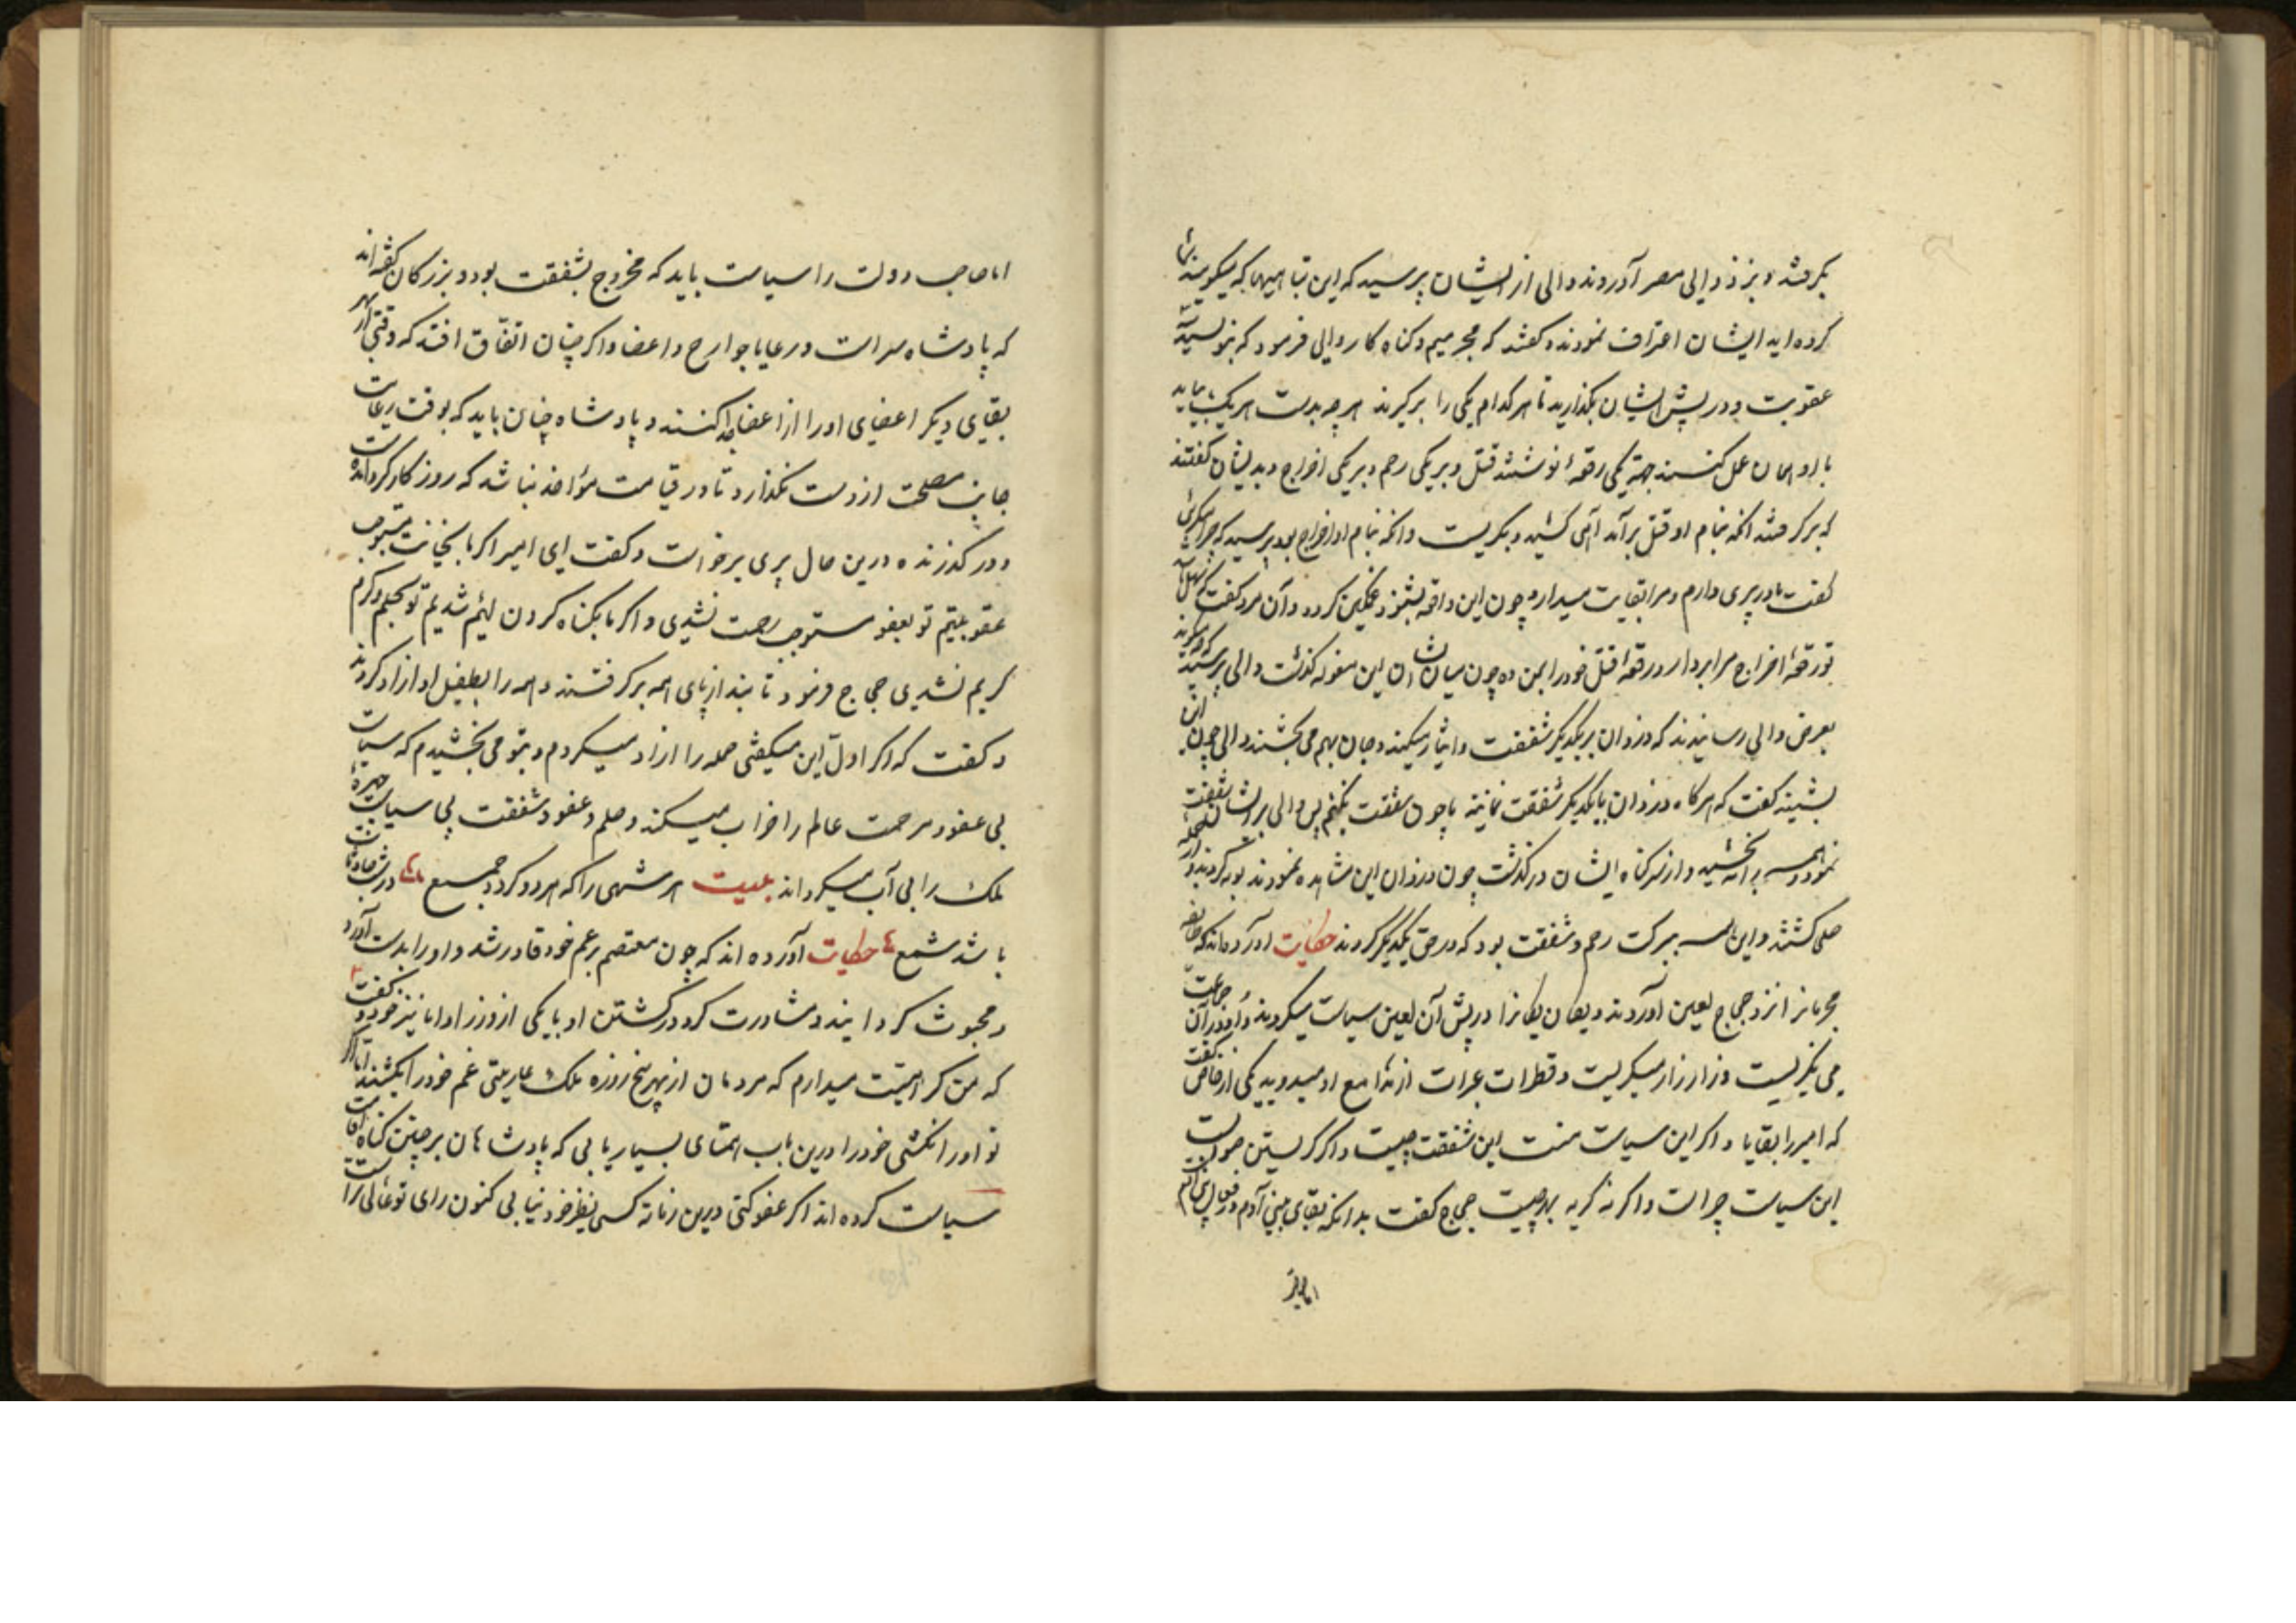 بگرفتند و بنزد والی مصر آوردند والی از ایشان پرسید که این تباهیها که میگویند شما
کرده اید ایشان اعتراف نمودند و گفتند که مجرمیم و گناه کار والی فرمود که بنویسید
عقوبت و در پیش ایشان بگذارید تا هر کدام یکی را برگیرند هر چه بدست هر یک بیاید
با او همان عمل کنند جهة یکی رقعهٔ نوشتند قتل و بر یکی رحم و بر یکی اخراج و بدیشان گفتند
که برگرفتند انکه بنام او قتل برآمد آهی کشید و بگریست و انکه بنام او اخراج بود پرسید که چرا میگریی
گفت مادر پیری دارم و مرا بغایت میدارد چون این واقعه بشنود غمگین گردد و آن مرد گفت که سهل
تو رقعهٔ اخراج مرا بردار و رقعهٔ قتل خود را بمن ده چون میان ایشان این مقوله گذشت والی پرسید که چه میگویند
بعرض والی رسانیدند که دزدان بر یکدیگر شفقت و ایثار میکنند و جان بهم می بخشند والی چون این
بشنید گفت که هر گاه دزدان با یکدیگر شفقت نمایند ما چون شفقت نکنیم پس والی بر ایشان شفقت
نمود و همه را بخشید و از سر گناه ایشان در گذشت چون دزدان این مشاهده نمودند توبه کردند و از
صلحا گشتند و این همه ببرکت رحم و شفقت بود که در حق یکدیگر کردند حکایت آورده اند که جماعت
مجرمانرا نزد حجاج لعین آوردند و یکان یکانرا در پیش آن لعین سیاست میکردند و او در آن جماعت
می نگریست و زار زار میگریست و قطرات عبرات از مدامع او میدوید یکی از خاص گفت
که امیر را بقا باد اگر این سیاست هست این شفقت چیست و اگر گریستن صوابست
این سیاست چراست و اگر نه گریه بهر چیست حجاج گفت بدانکه بقای بنی آدم در
اما صاحب دولت را سیاست باید که ممزوج بشفقت بود و بزرگان گفته اند
که پادشاه سر است و رعایا جوارح و اعضا و اگر چنان اتفاق افتد که وقتی از بهر
بقای دیگر اعضای او را از اعضا جدا کنند و پادشاه چنان باید که بوقت رعایت
جانب مصلحت از دست نگذارد تا در قیامت مؤاخذ نباشد که روزگار گردانست
و در گذرنده درین حال پیری برخواست و گفت ای امیر اگر ما بخیانت مستوجب
عقوبتیم تو بعفو مستوجب رحمت نشدی و اگر ما بگناه کردن لئیم شدیم تو بحلم و کرم
کریم نشدی حجاج فرمود تا بند از پای همه برگرفتند و همه را بطفیل او آزاد کردند
و گفت که اگر اول این میگفتی جمله را ازاد میکردم و بتو می بخشیدم که سیاست
بی عفو و مرحمت عالم را خراب میکند و حلم و عفو و شفقت بی سیاست چهرهٔ
ملک را بی آب میگرداند بیت هر شهی را که هر دو گردد جمع در شهادت
باشد شمع حکایت آورده اند که چون معتصم بر عم خود قادر شد و او را بدست آورد
و محبوس گردانید و مشاورت کرد در کشتن او با یکی از وزرا و اما نیز خود گفت
که من کراهیت میدارم که مردمان از بهر پنج روزه ملک عاریتی عم خود را بکشند اما اگر
تو او را نکشی خود را درین باب همتای بسیار یابی که پادشاهان بر چنین گناه
سیاست کرده اند اگر عفو کنی درین زمانه کسی نظیر خود نیابی کنون رای تو عالی تر است